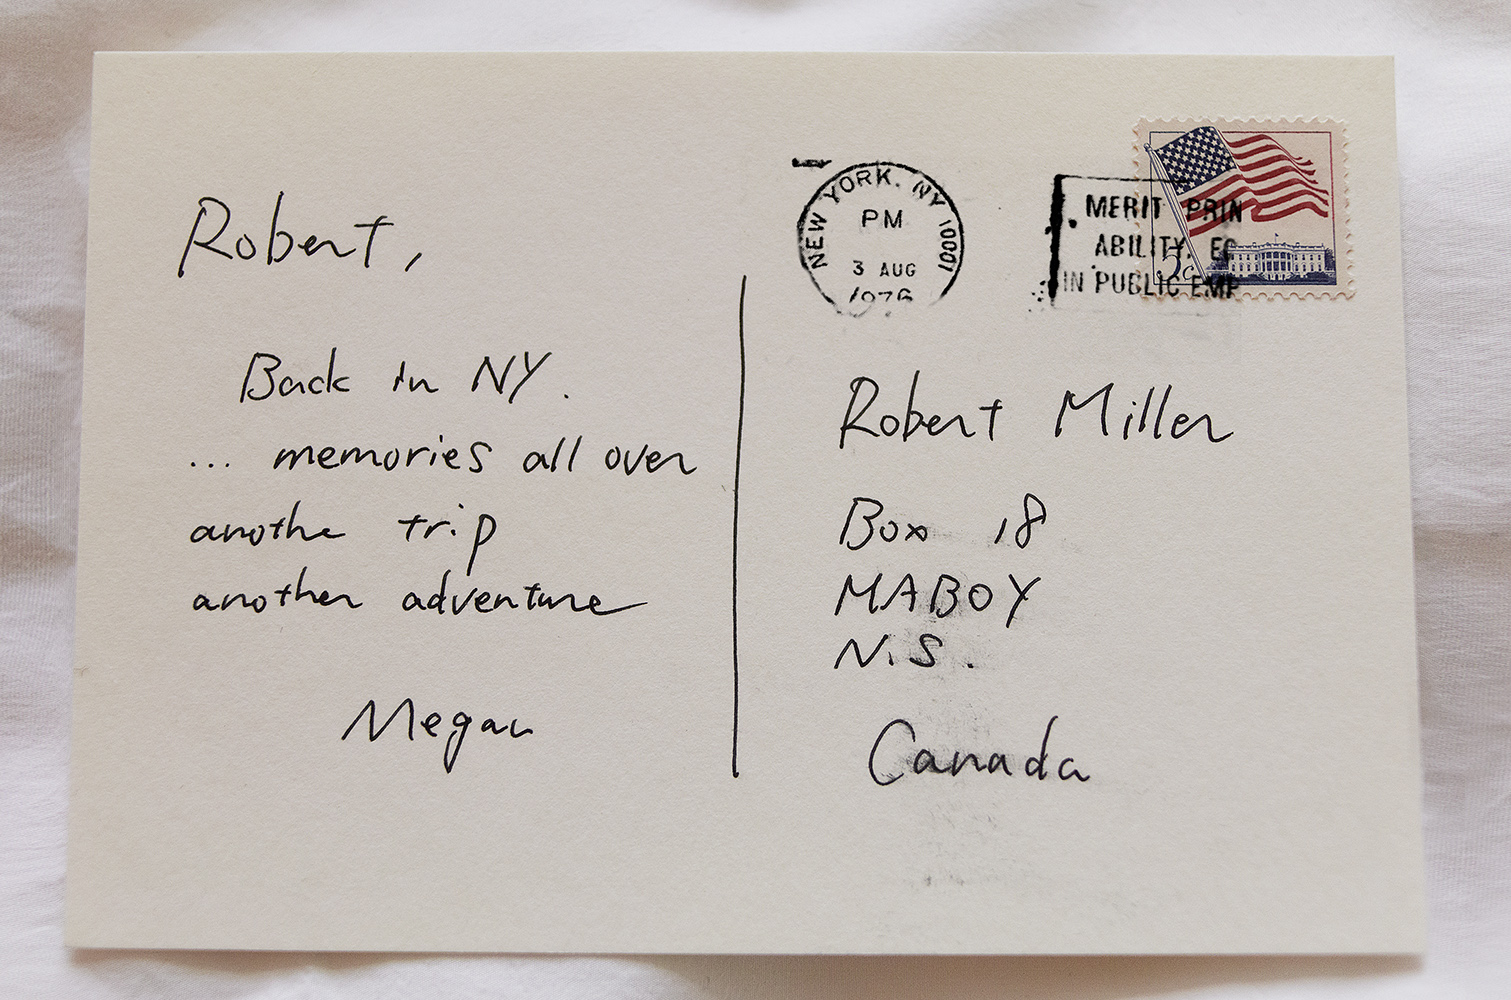 Robert,
Back in NY.
... memories all over
anothe trip
another adventure
Megan
NEW YORK, NY 10001
PM
3 AUG
1976
MERIT PRIN
ABILITY, EQ
IN PUBLIC EMP
5c
Robert Miller
Box 18
MABOY
N.S.
Canada